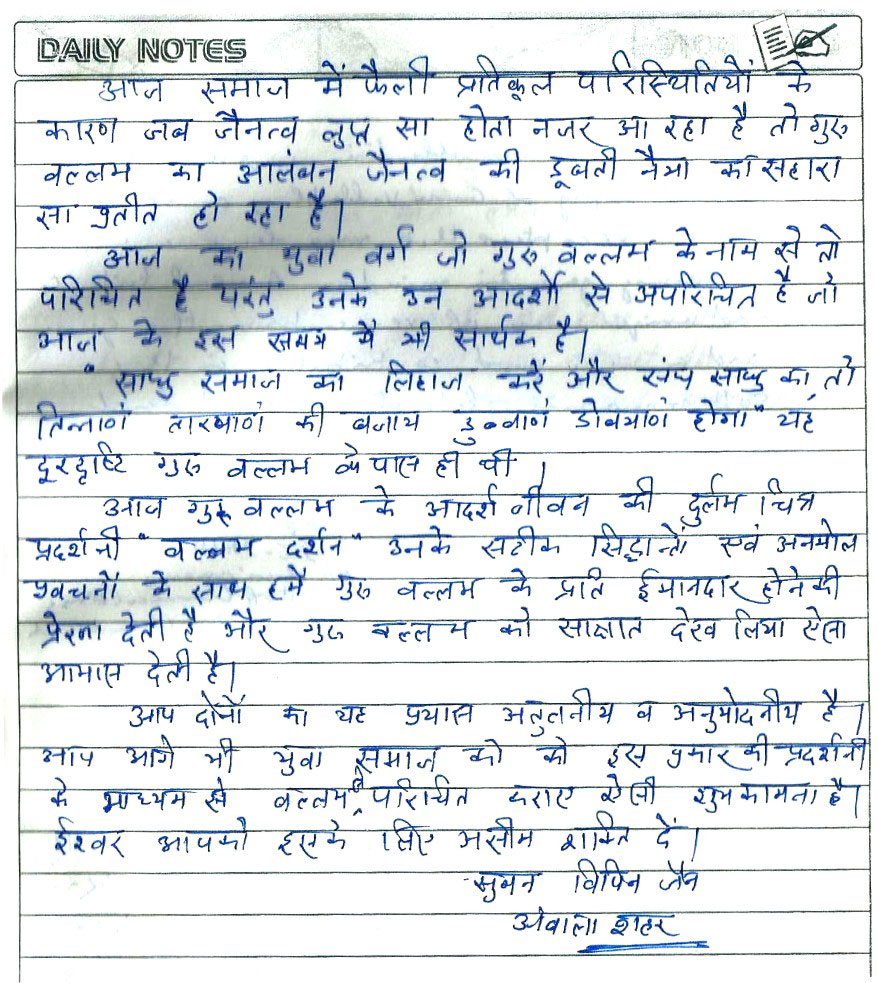 DAILY NOTES
आज समाज में फैली प्रतिकूल परिस्थितियों के
कारण जब जैनत्व लुप्त सा होता नजर आ रहा है तो गुरु
वल्लभ का आलंबन जैनत्व की डूबती नैया का सहारा
सा प्रतीत हो रहा है।
आज का युवा वर्ग जो गुरु वल्लभ के नाम से तो
परिचित है परंतु उनके उन आदर्शों से अपरिचित है जो
आज के इस समय में भी सार्थक है।
"साधु समाज का लिहाज करें और संघ साधु का तो
तिन्नाणं तारयाणं की बजाय डुब्बाणं डोवयाणं होगा" यह
दूरदृष्टि गुरु वल्लभ के पास ही थी।
आज गुरु वल्लभ के आदर्श जीवन की दुर्लभ चित्र
प्रदर्शनी "वल्लभ दर्शन" उनके सटीक सिद्धान्तों एवं अनमोल
प्रवचनों के साथ हमें गुरु वल्लभ के प्रति ईमानदार होने की
प्रेरणा देती है और गुरु वल्लभ को साक्षात देख लिया ऐसा
आभास देती है।
आप दोनों का यह प्रयास अतुलनीय व अनुमोदनीय है।
आप आगे भी युवा समाज को को इस प्रकार की प्रदर्शनी
के माध्यम से वल्लभ से परिचित कराए ऐसी शुभकामना है।
ईश्वर आपको इसके लिए असीम शक्ति दें।
सुमन विपिन जैन
अंबाला शहर